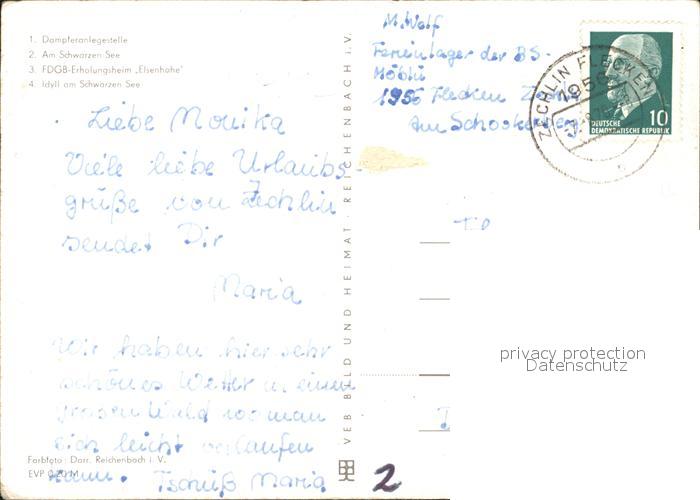 1. Dampferanlegestelle
2. Am Schwarzen See
3. FDGB-Erholungsheim „Elsenhöhe"
4. Idyll am Schwarzen See
Liebe Monika
Viele liebe Urlaubs-
grüße von Zechlin
sendet Dir
Maria
Wir haben hier sehr
schönes Wetter u. einen
grosen Wald wo man
sich leicht verlaufen
kann. Tschüß Maria
Farbfoto: Darr, Reichenbach i. V.
EVP 0,20 M
VEB BILD UND HEIMAT · REICHENBACH i. V.
M. Wolf
Ferienlager der BS-
Möbin
1956 Flecken
Am
ZECHLIN FLECKEN
1956
10
DEUTSCHE
DEMOKRATISCHE REPUBLIK
privacy protection
Datenschutz
2